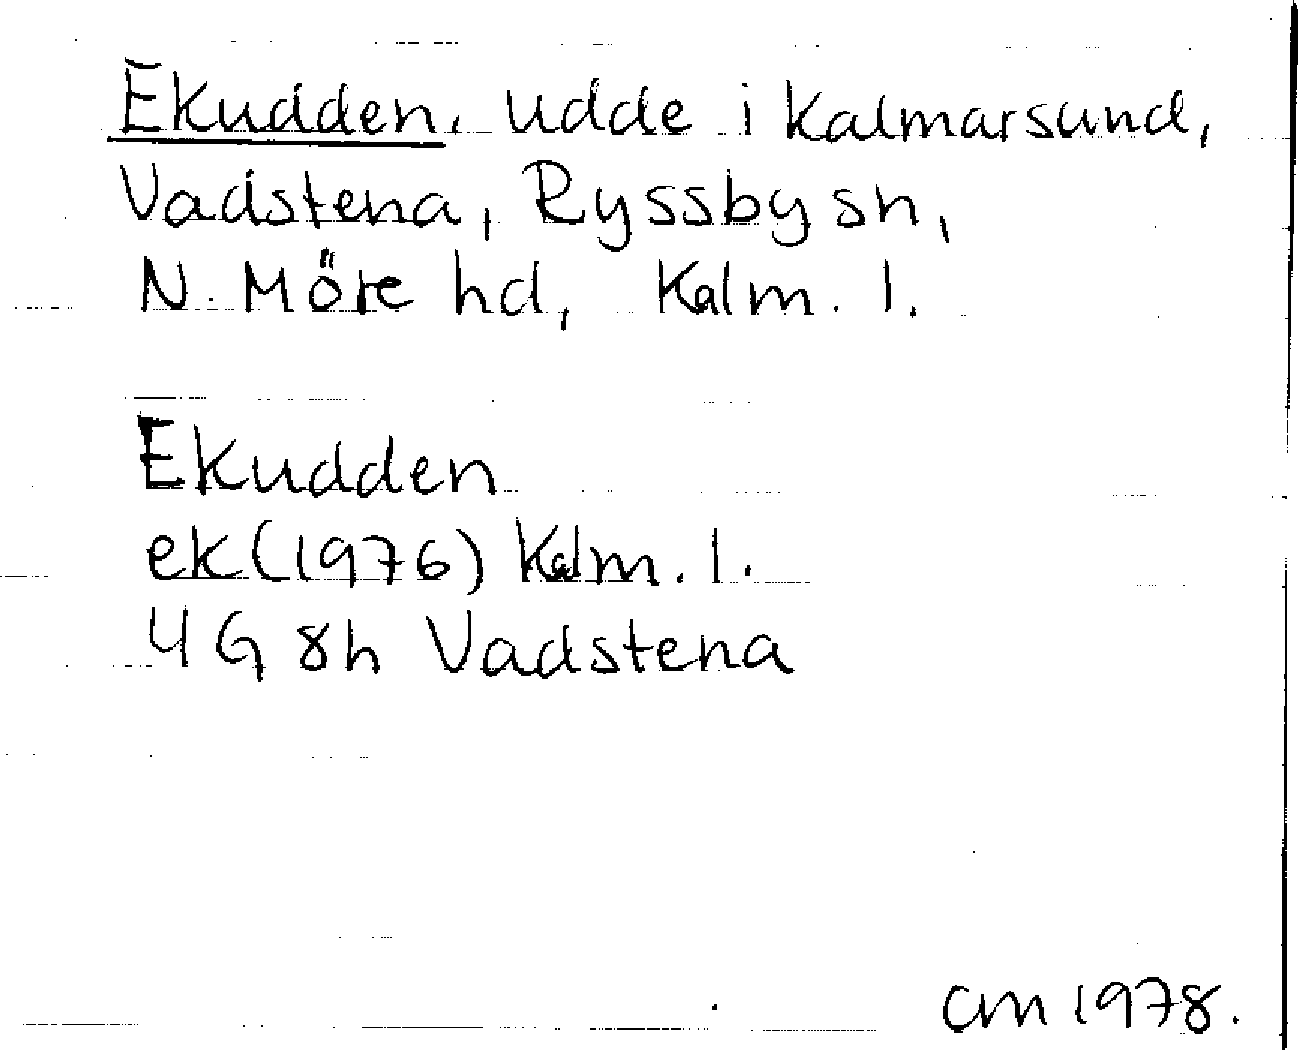 Ekudden, udde i Kalmarsund,
Vadstena, Ryssby sn,
N. Möre hd, Kalm. l.
Ekudden
ek (1976) Kalm. l.
4G 8h Vadstena
CM 1978.